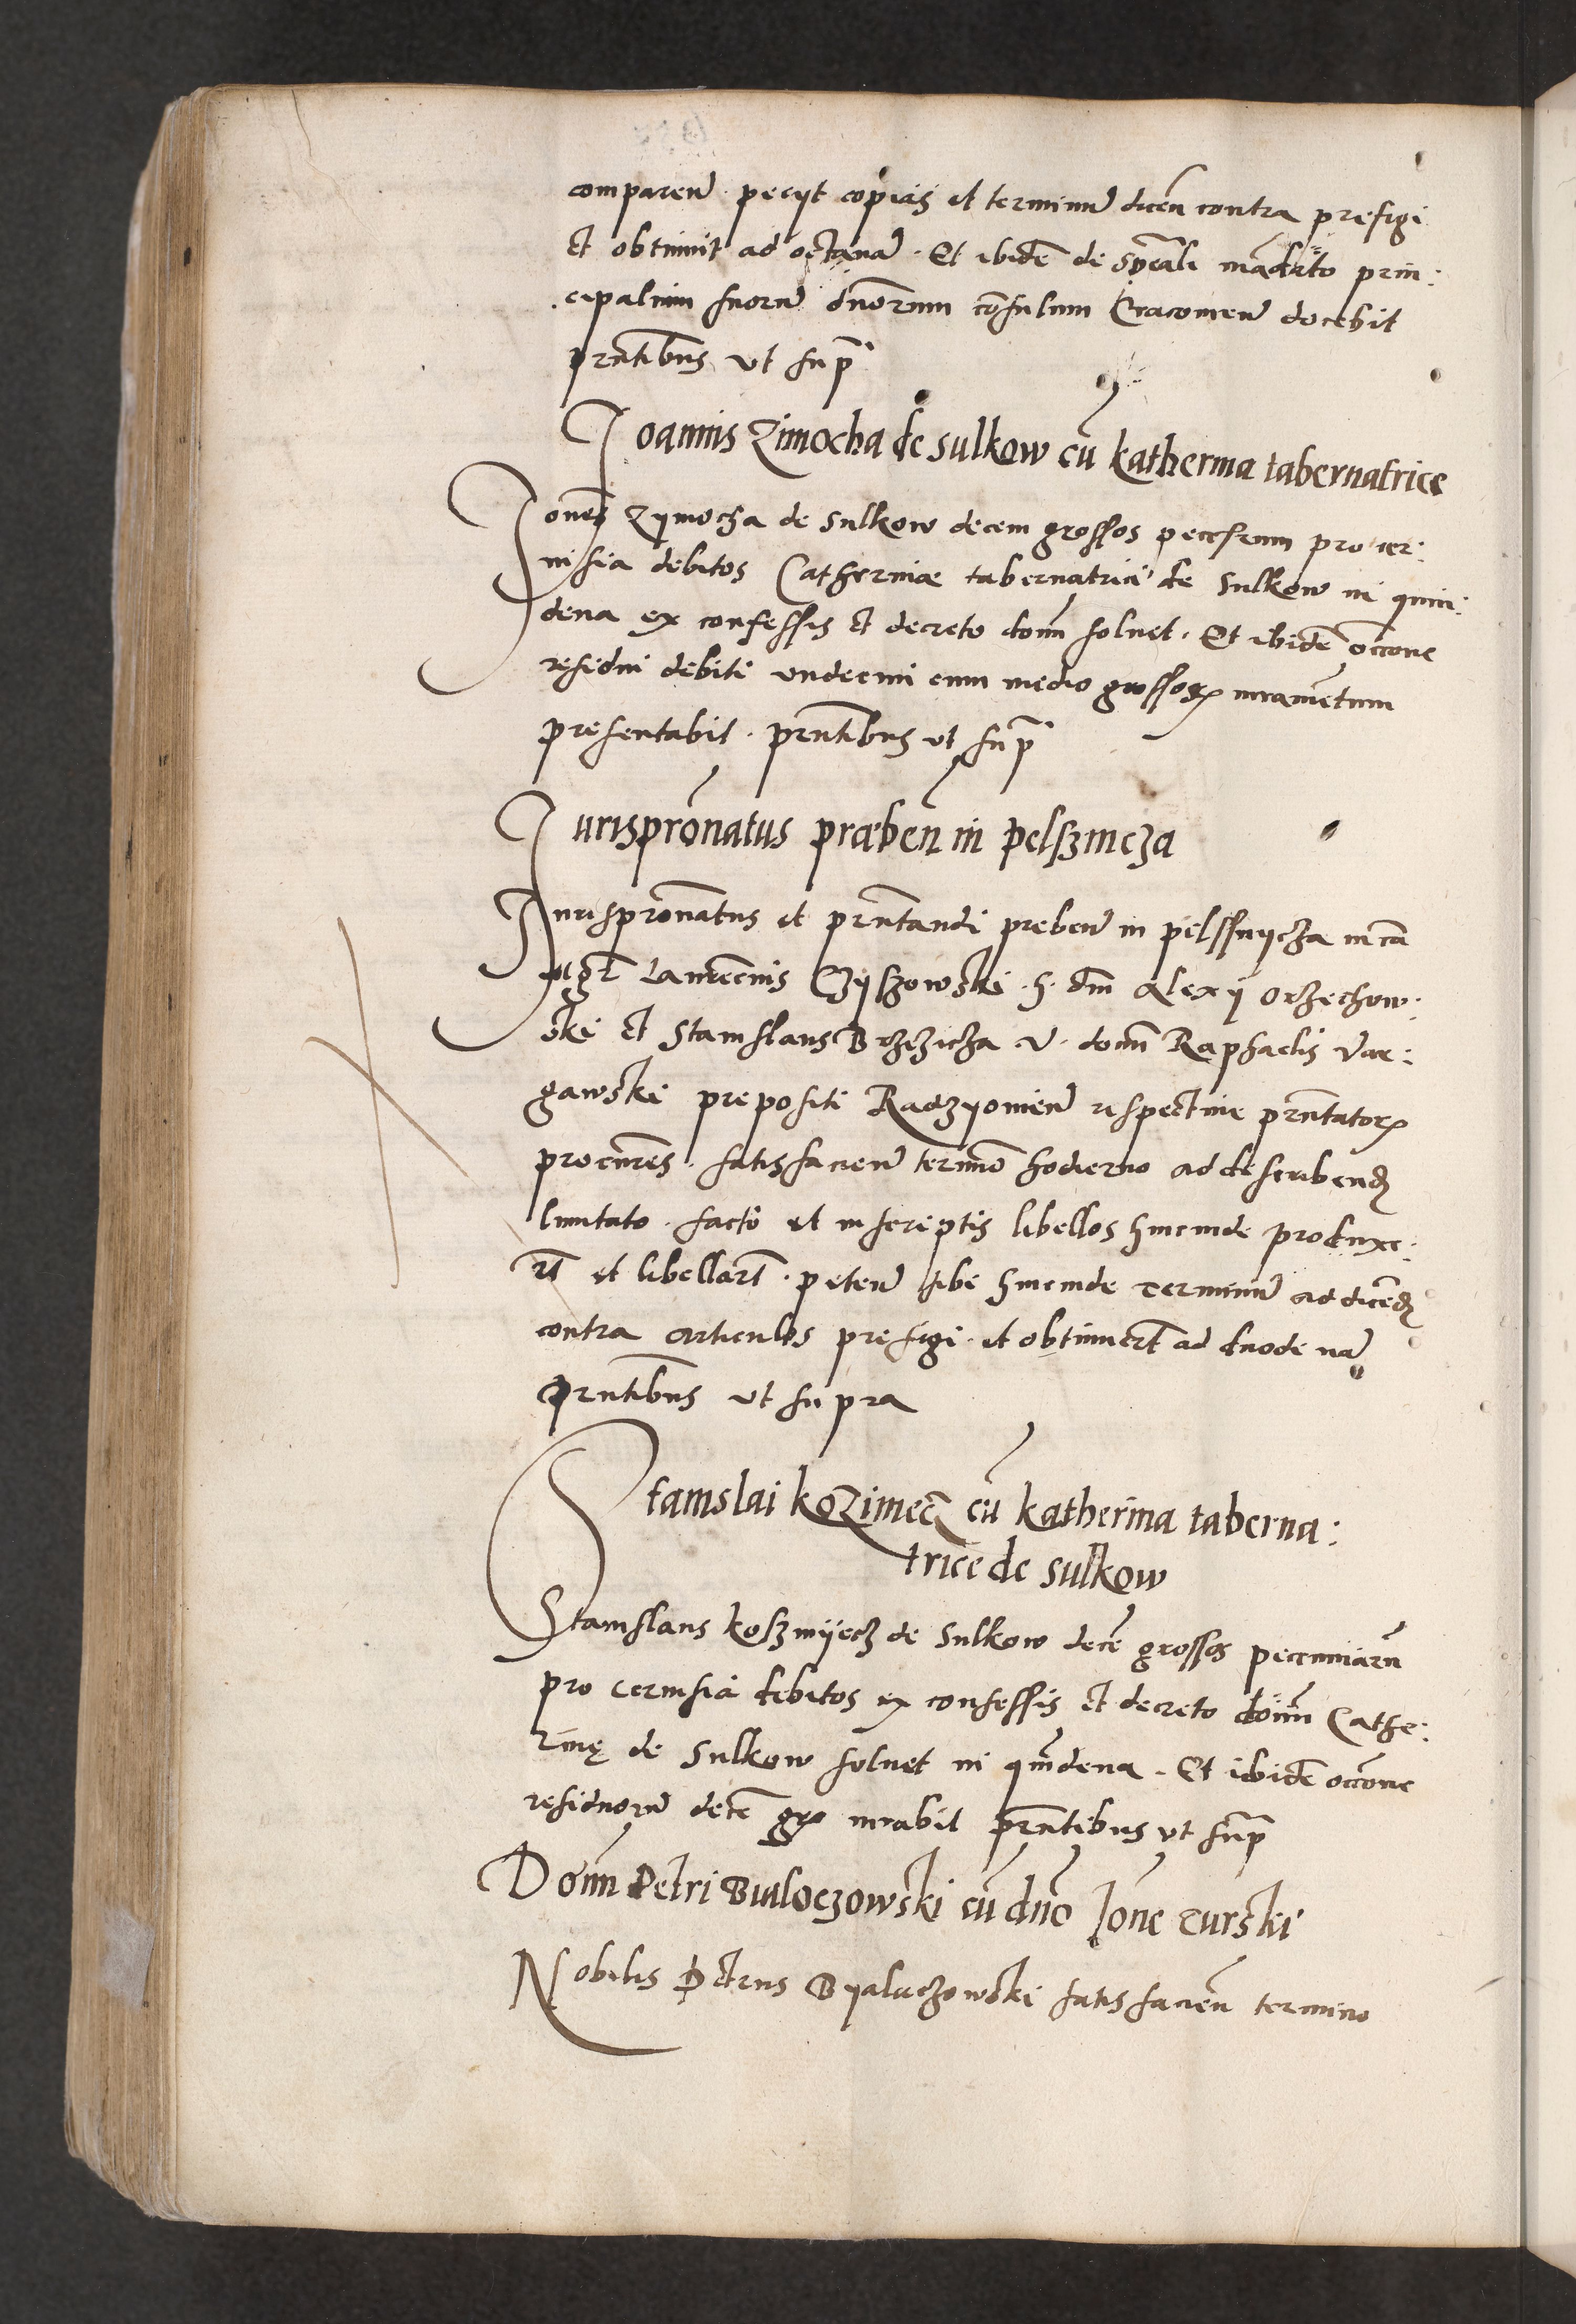 comparen̄ peciit copias et terminū dicen̄ contra prefigi
et obtinuit ad octavā. Et ibidē de spēali mādato prin:
cipalium suorū dn̄orum cōsulum Cracovien̄ docebit
pn̄tibus ut sup̄
Joannis Zimocha de sulkow cū katherina tabernatrice
Joānes Zymocha de Sulkow decem grossos pro cer:
visia debitos Catherinæ tabernatrici de Sulkow in quin:
dena ex confessis et decreto dom̄ solvet. Et ibidē occōne
residui debiti undecimi cum medio grossoꝝ iuramētum
presentabit. prn̄tibus ut sup̄
Jurisprōnatus præben̄ in pelsznicza
Jurisprōnatus et prn̄tandi preben̄ in pelssnycza in cā
Laurēcius Czyszowski. S. dn̄i Alexij Orzechow:
ski et Stanislaus Brzezicza. V. dom̄ Raphaelis Var:
gawski prepositi Radzyovien̄ respective prn̄tatoꝝ
procūres. satisfacien̄ termīo hodierno ad describendꝫ
limitato. facto et in scriptis libellos hincinde produxe:
rt̄ et libellart̄. peten̄ sibi hincinde terminū ad dicēdꝫ
contra articulos prefigi. et obtinuert̄ ad duodenā
prn̄tibus ut supra
Stanislai koZimecz cū katherina taberna:
trice de sulkow
Stanislaus koszmyecz de Sulkow decē grossos pecuniarū
pro cervisia debitos ex confessis et decreto dom̄ Cathe:
rinę de Sulkow solvet in quīdena. Et ibidē occōne
residuorū decē gro iurabit prn̄tibus ut sup̄
Dom̄ Petri Bialoczowski cū dn̄o Joān̄e Turski
Nobilis Petrus Byaluczowski satisfacien̄ termino